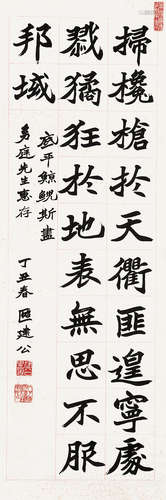 掃欃槍於天衢匪遑寧處
戮獝狂於地表無思不服
邦域
底平鯨鯢斯盡
勇庭先生惠存
丁丑春 區建公